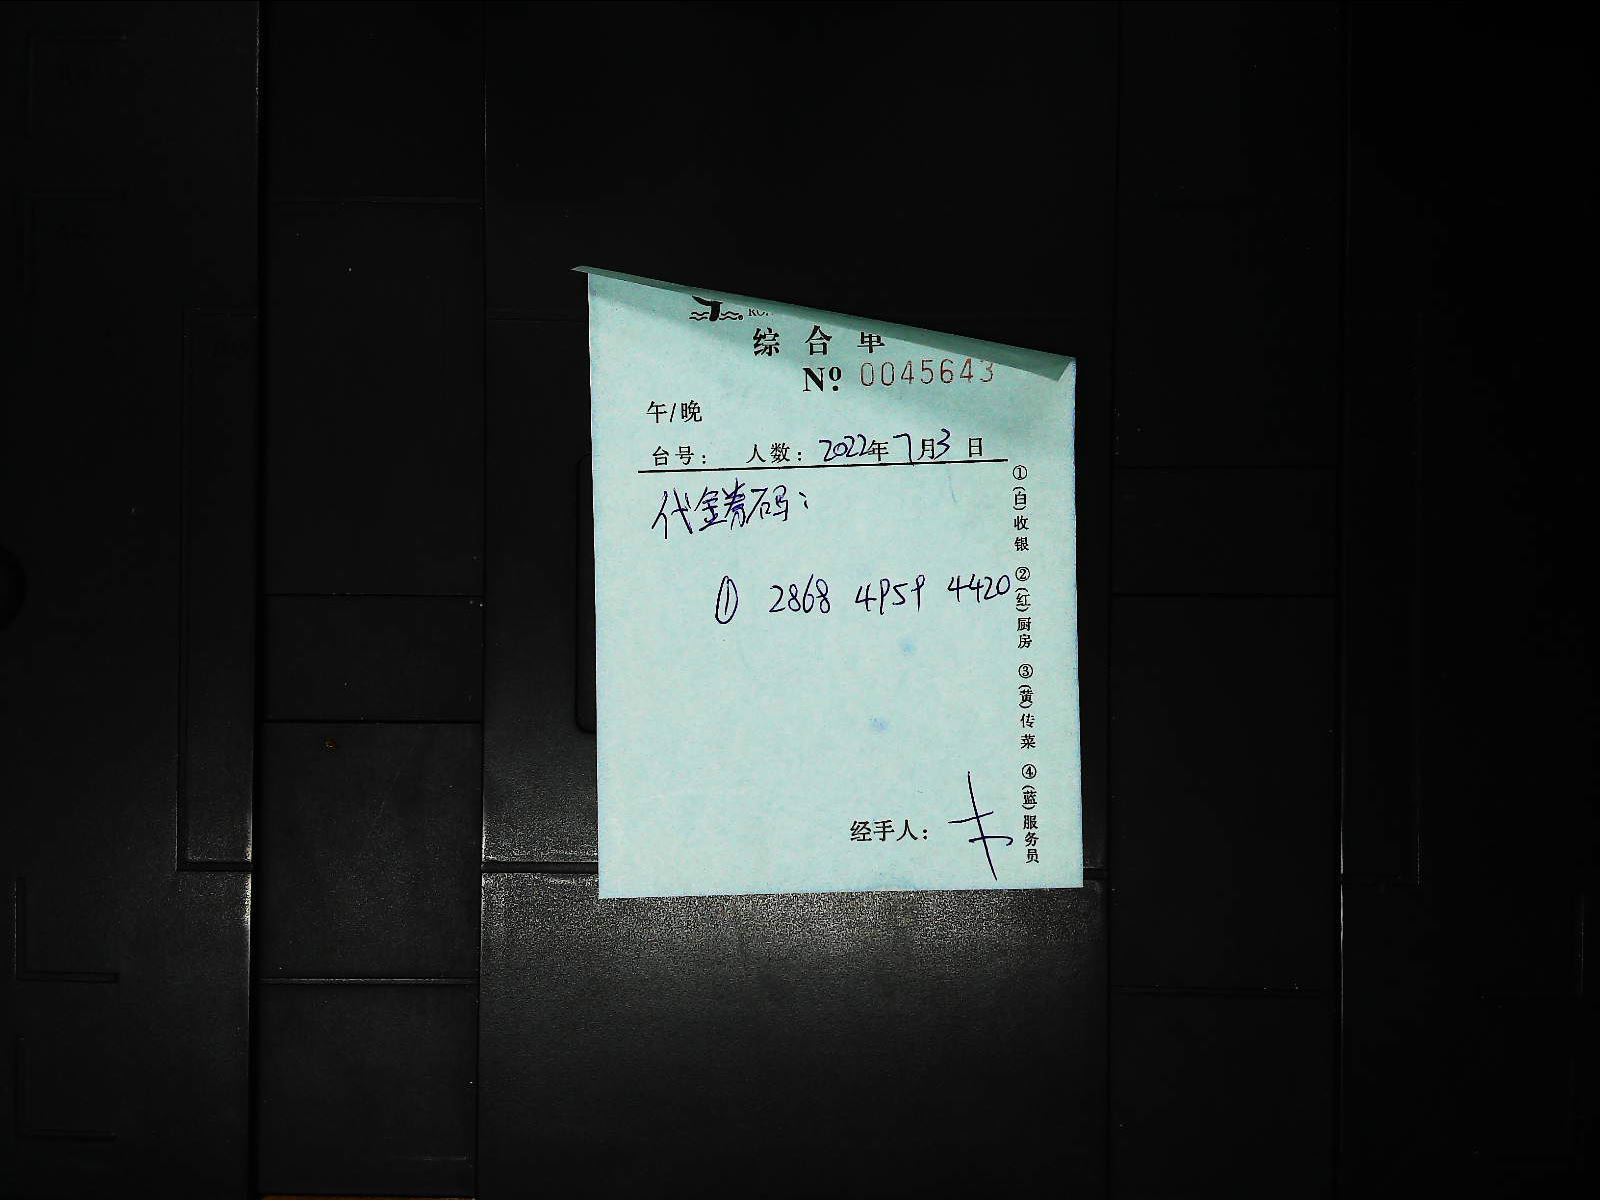 综合单
№ 0045643
午/晚
台号： 人数： 2022年7月3日
代金券码：
① 2868 4959 4420
经手人：
①(白)收银 ②(红)厨房 ③(黄)传菜 ④(蓝)服务员